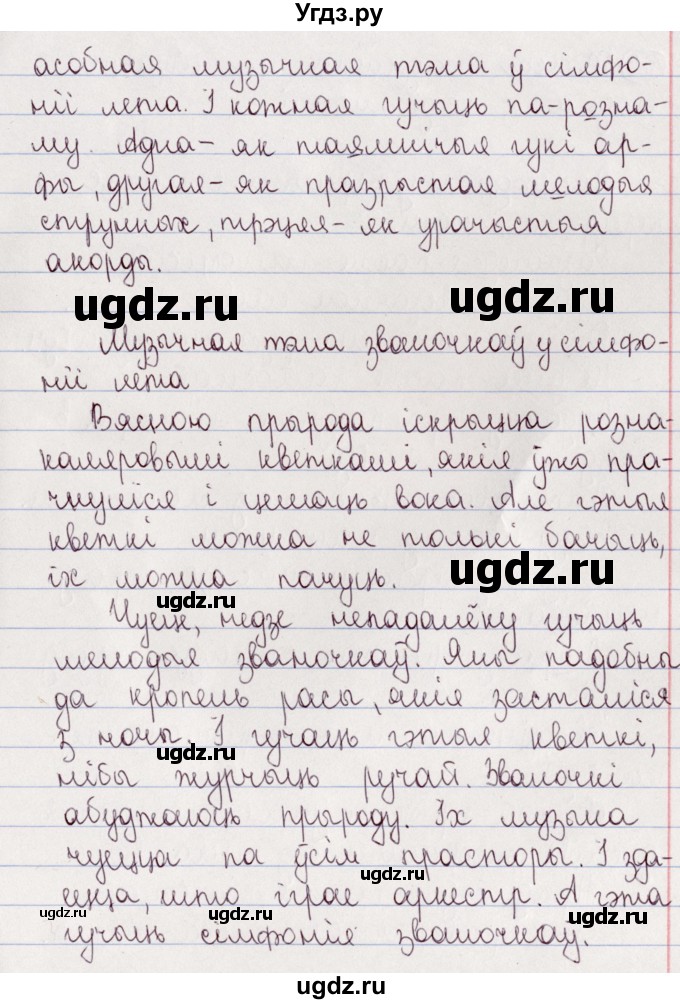 Угдз.ру
асобная музычная тэма ў сімфо-
ніі лета. І кожная гучыць па-розна-
му. Адна - як таямнічыя гукі ар-
фы, другая - як празрыстая мелодыя
струнных, трэцяя - як урачыстыя
акорды.
ugdz.ru ugdz.ru
Музычная тэма званочкаў у сімфо-
ніі лета
Вясною прырода іскрыцца розна-
каляровымі кветкамі, якія ўжо пра-
чнуліся і цешаць вока. Але гэтыя
кветкі можна не толькі бачыць,
іх можна пачуць. ugdz.ru
ugdz.ru
Чуеце, недзе непадалёку гучыць
мелодыя званочкаў. Яны падобны
да кропель расы, якія засталіся
з ночы. І гучаць гэтыя кветкі,
ugdz.ru
нібы журчыць ручай. Званочкі
абуджаюць прыроду. Іх музыка
чуецца па ўсім прасторы. І зда-
ugdz.ru
ецца, што іграе аркестр. А гэта
ugdz.ru ugdz.ru ugdz.ru
гучыць сімфонія званочкаў.
ugdz.ru